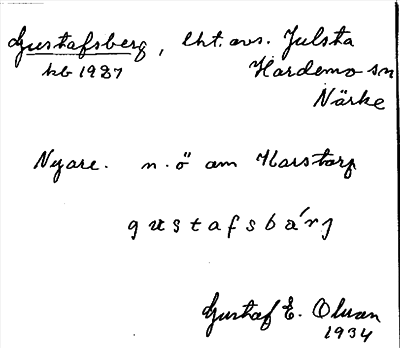 Gustafsberg, lht. avs. Julsta
kb 1927 Hardemo sn
Närke
Nyare. n. ö om Harstorp
gustafsbárj
Gustaf E. Olsson
1934